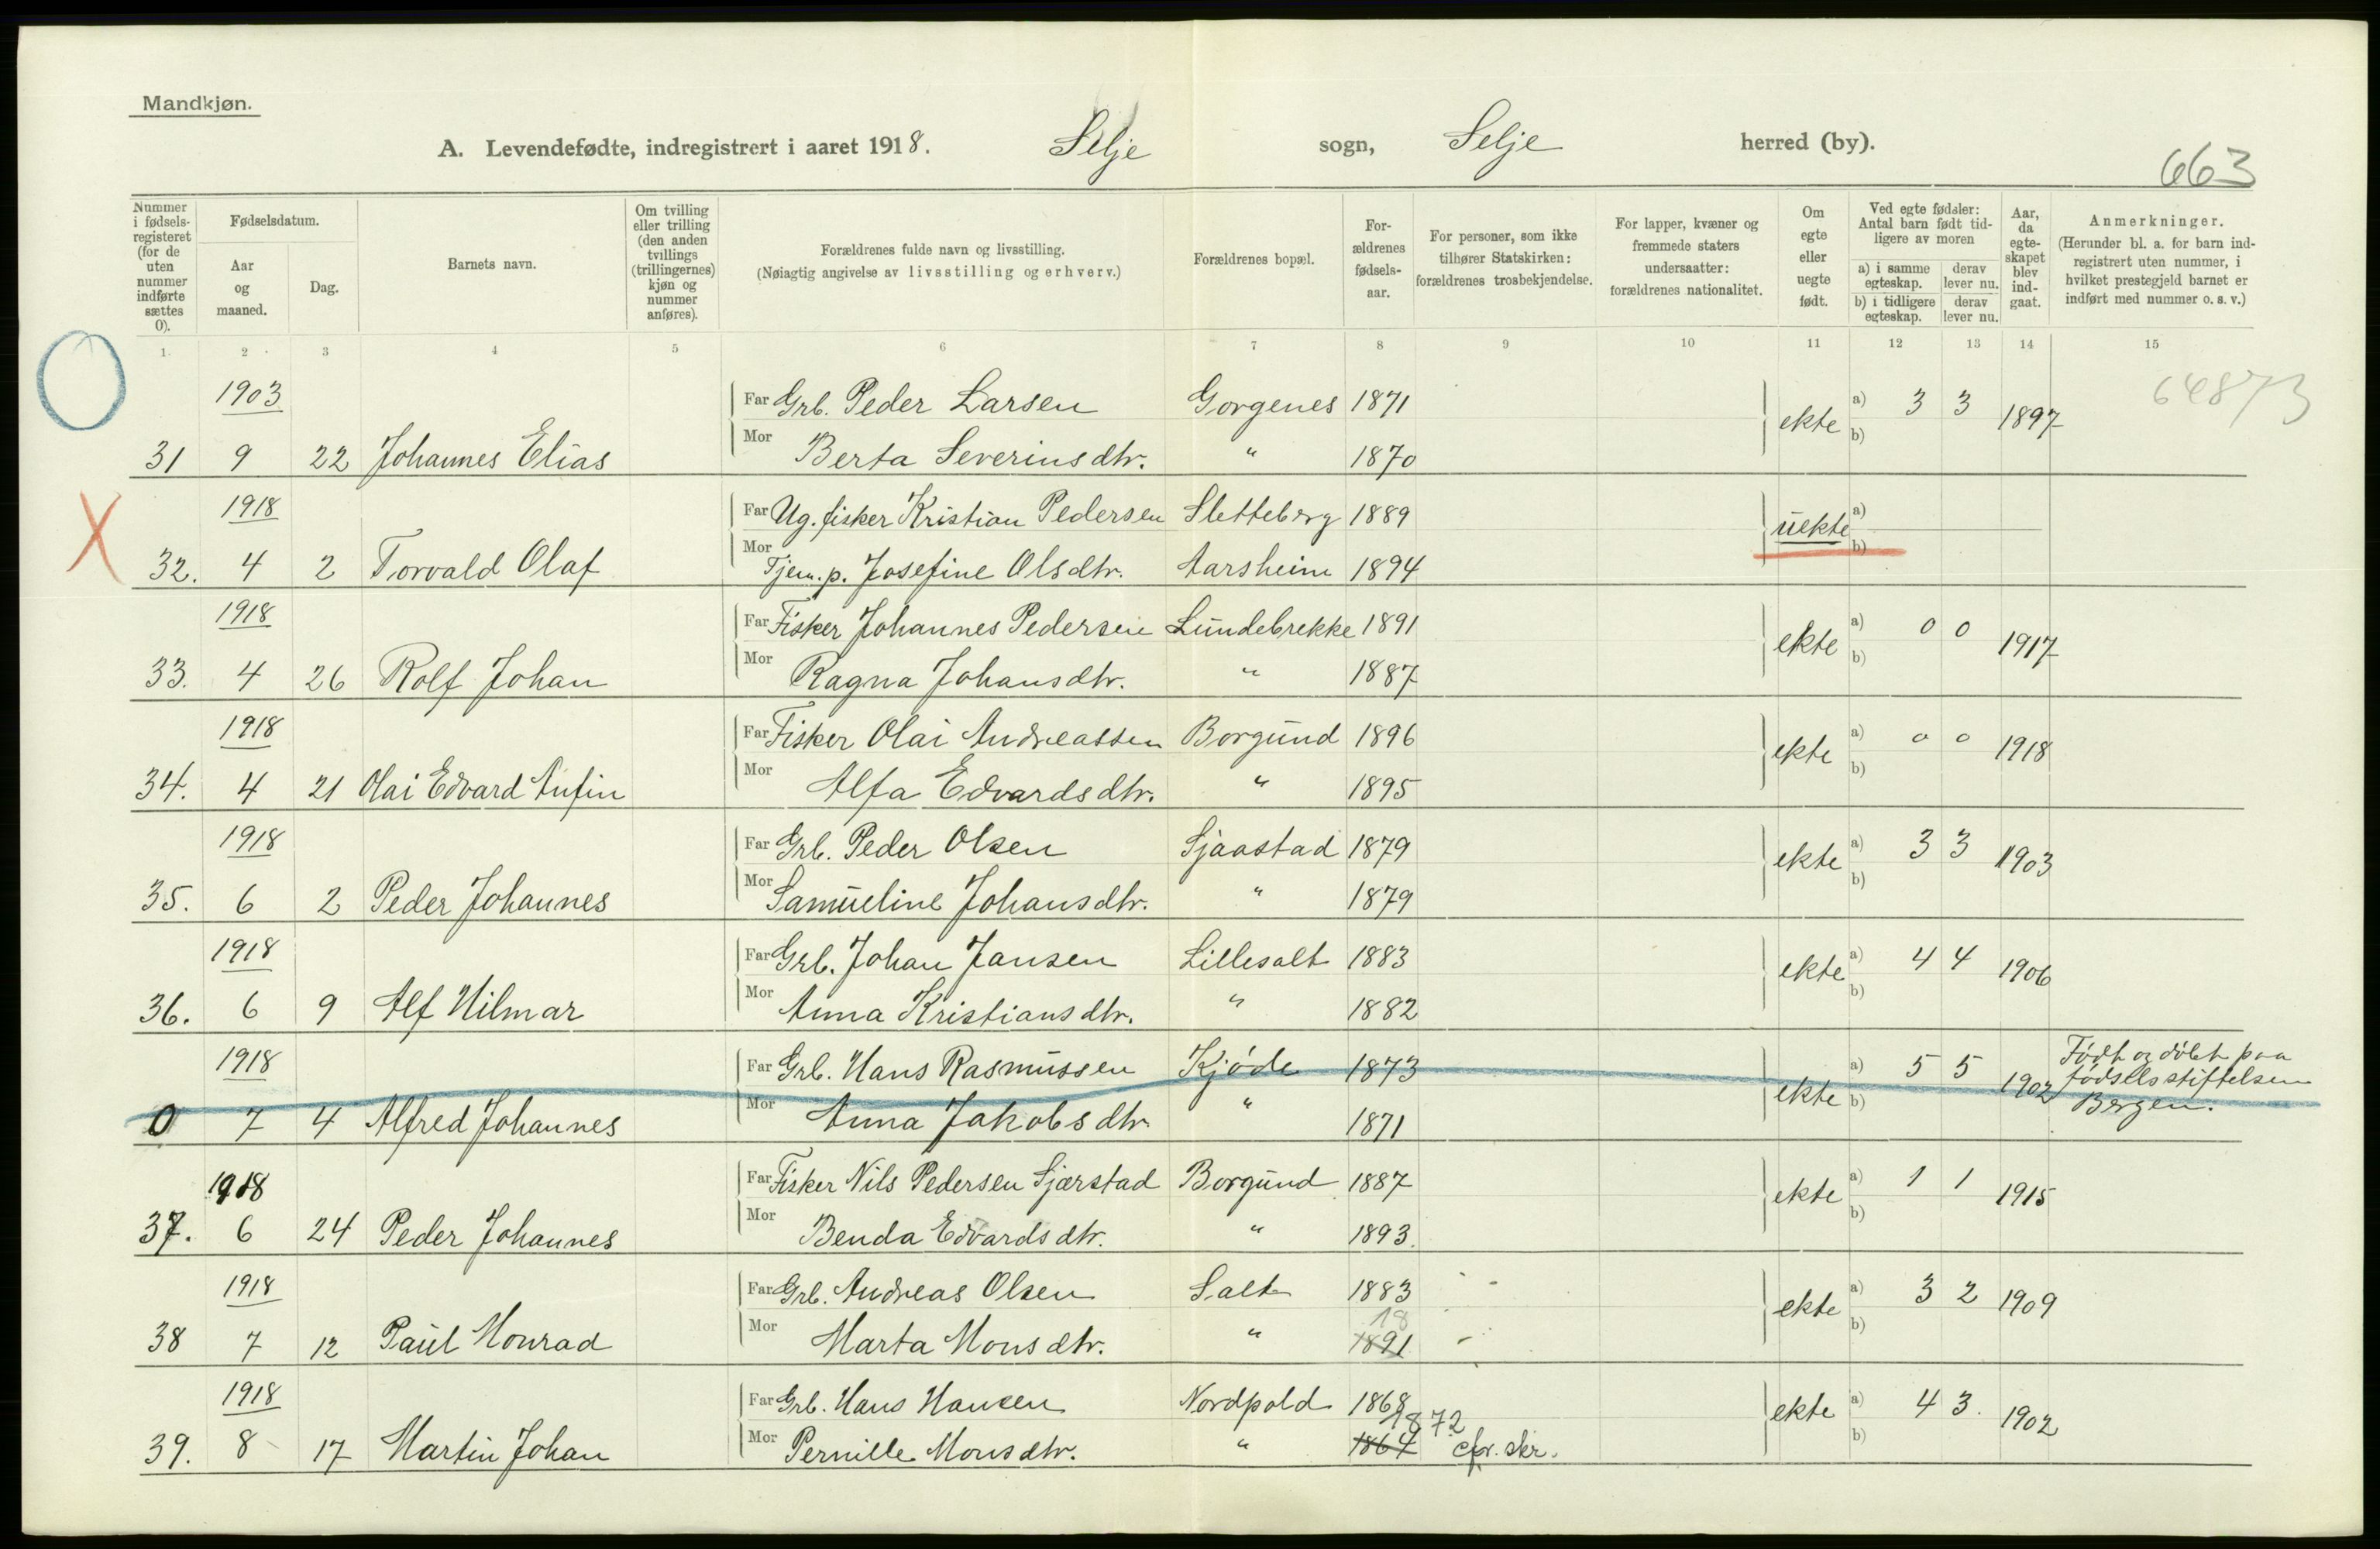 Mandkjøn.
A. Levendefødte, indregistrert i aaret 1918. Selje sogn, Selje herred (by).
663
Nummer i fødsels-registeret (for de uten nummer indførte sættes 0).
Fødselsdatum.
Aar og maaned.
Dag.
Barnets navn.
Om tvilling eller trilling (den anden tvillings (trillingernes) kjøn og nummer anføres).
Forældrenes fulde navn og livsstilling.
(Nøiagtig angivelse av livsstilling og erhverv.)
Forældrenes bopæl.
For-ældrenes fødsels-aar.
For personer, som ikke tilhører Statskirken: forældrenes trosbekjendelse.
For lapper, kvæner og fremmede staters undersaatter: forældrenes nationalitet.
Om egte eller uegte født.
Ved egte fødsler: Antal barn født tid-ligere av moren
a) i samme egteskap.
derav lever nu.
b) i tidligere egteskap.
derav lever nu.
Aar, da egte-skapet blev ind-gaat.
Anmerkninger.
(Herunder bl. a. for barn ind-registrert uten nummer, i hvilket prestegjeld barnet er indført med nummer o. s. v.)
1. 2 3 4 5 6 7 8 9 10 11 12 13 14 15
64873
1903 Far Grb. Peder Larsen Gorgenes 1871 ekte a) 3 3 1897
31 9 22 Johannes Elias Mor Berta Severinsdtr. " 1870 b)
1918 Far Ug. fisker Kristian Pedersen Sletteberg 1889 uekte a)
32. 4 2 Torvald Olaf Mor Tjen. p. Josefine Olsdtr. Aarsheim 1894 b)
1918 Far Fisker Johannes Pedersen Lundebrekke 1891 ekte a) 0 0 1917
33. 4 26 Rolf Johan Mor Ragna Johansdtr. " 1887 b)
1918 Far Fisker Olai Andreassen Borgund 1896 ekte a) 0 0 1918
34. 4 21 Olai Edvard Anfin Mor Alfa Edvardsdtr. " 1895 b)
1918 Far Grb. Peder Olsen Sjaastad 1879 ekte a) 3 3 1903
35. 6 2 Peder Johannes Mor Samueline Johansdtr. " 1879 b)
1918 Far Grb. Johan Jansen Lillesalt 1883 ekte a) 4 4 1906
36. 6 9 Alf Hilmar Mor Anna Kristiansdtr. " 1882 b)
1918 Far Grb. Hans Rasmussen Kjøde 1873 ekte a) 5 5 1902 Født og døbt paa fødselsstiftelsen Bergen.
0 7 4 Alfred Johannes Mor Anna Jakobsdtr. " 1871 b)
1918 Far Fisker Nils Pedersen Sjærstad Borgund 1887 ekte a) 1 1 1915
37. 6 24 Peder Johannes Mor Benda Edvardsdtr. " 1893. b)
1918 Far Grb. Andreas Olsen Salt 1883 ekte a) 3 2 1909
18
38 7 12 Paul Monrad Mor Marta Monsdtr. " 1891 b)
1918 Far Grb. Hans Hansen Nordpold 1868 ekte a) 4 3. 1902
1872
39. 8 17 Martin Johan Mor Pernille Monsdtr. " 1864 cfr. skr. b)